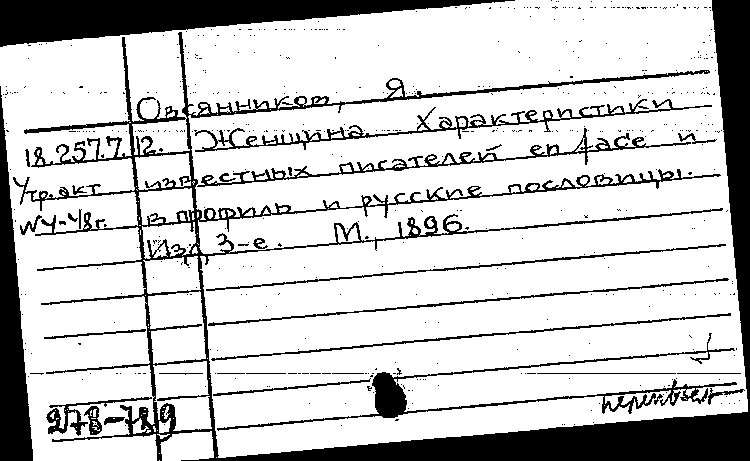 Овсянников, Я.
18.257.7.12. Женщина. Характеристики
Утр. акт известных писателей en face и
N4-48г. в профиль и русские пословицы.
Изд. 3-е. М., 1896.
278-789